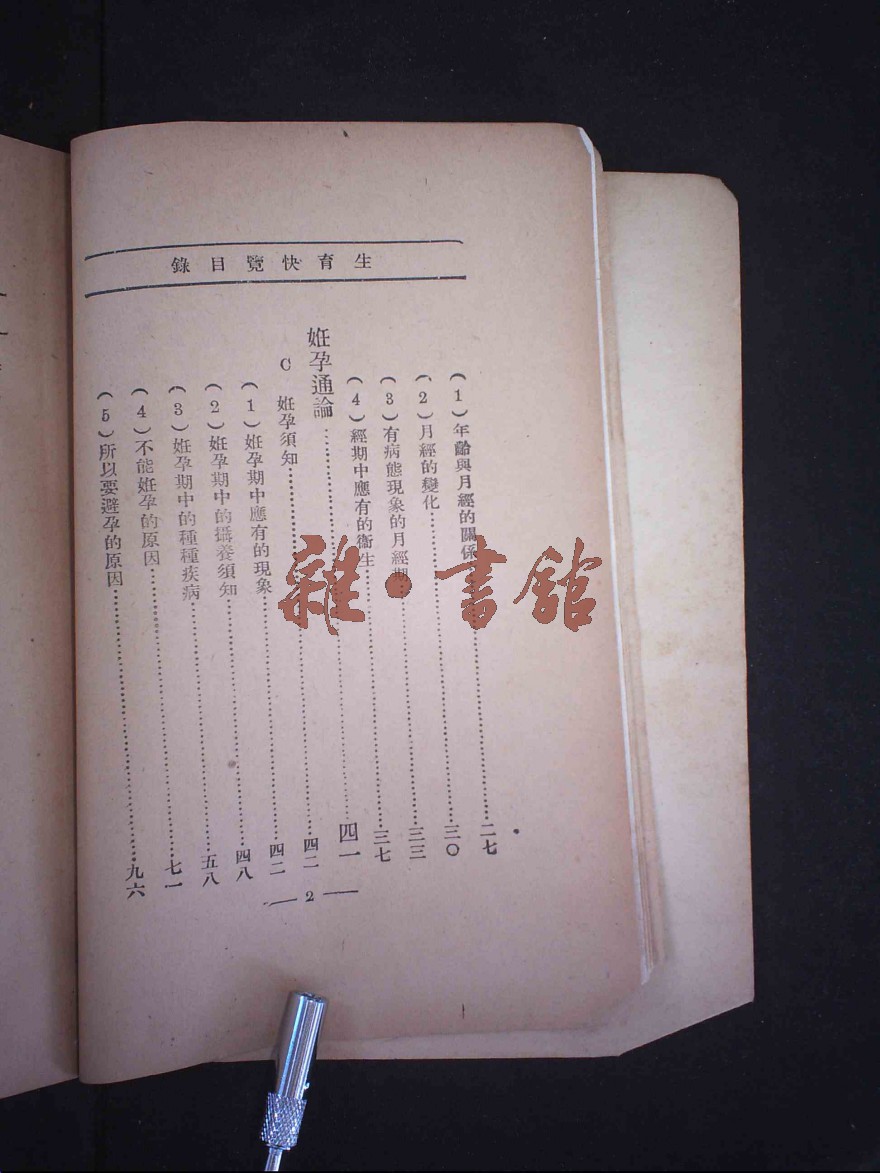 生育快覽目錄
(1)年齡與月經的關係……二七
(2)月經的變化……三〇
(3)有病態現象的月經期……三三
(4)經期中應有的衞生……三七
姙孕通論……四一
C 姙孕須知……四二
(1)姙孕期中應有的現象……四二
(2)姙孕期中的攝養須知……四八
(3)姙孕期中的種種疾病……五八
(4)不能姙孕的原因……七一
(5)所以要避孕的原因……九六
— 2 —
雜·書館